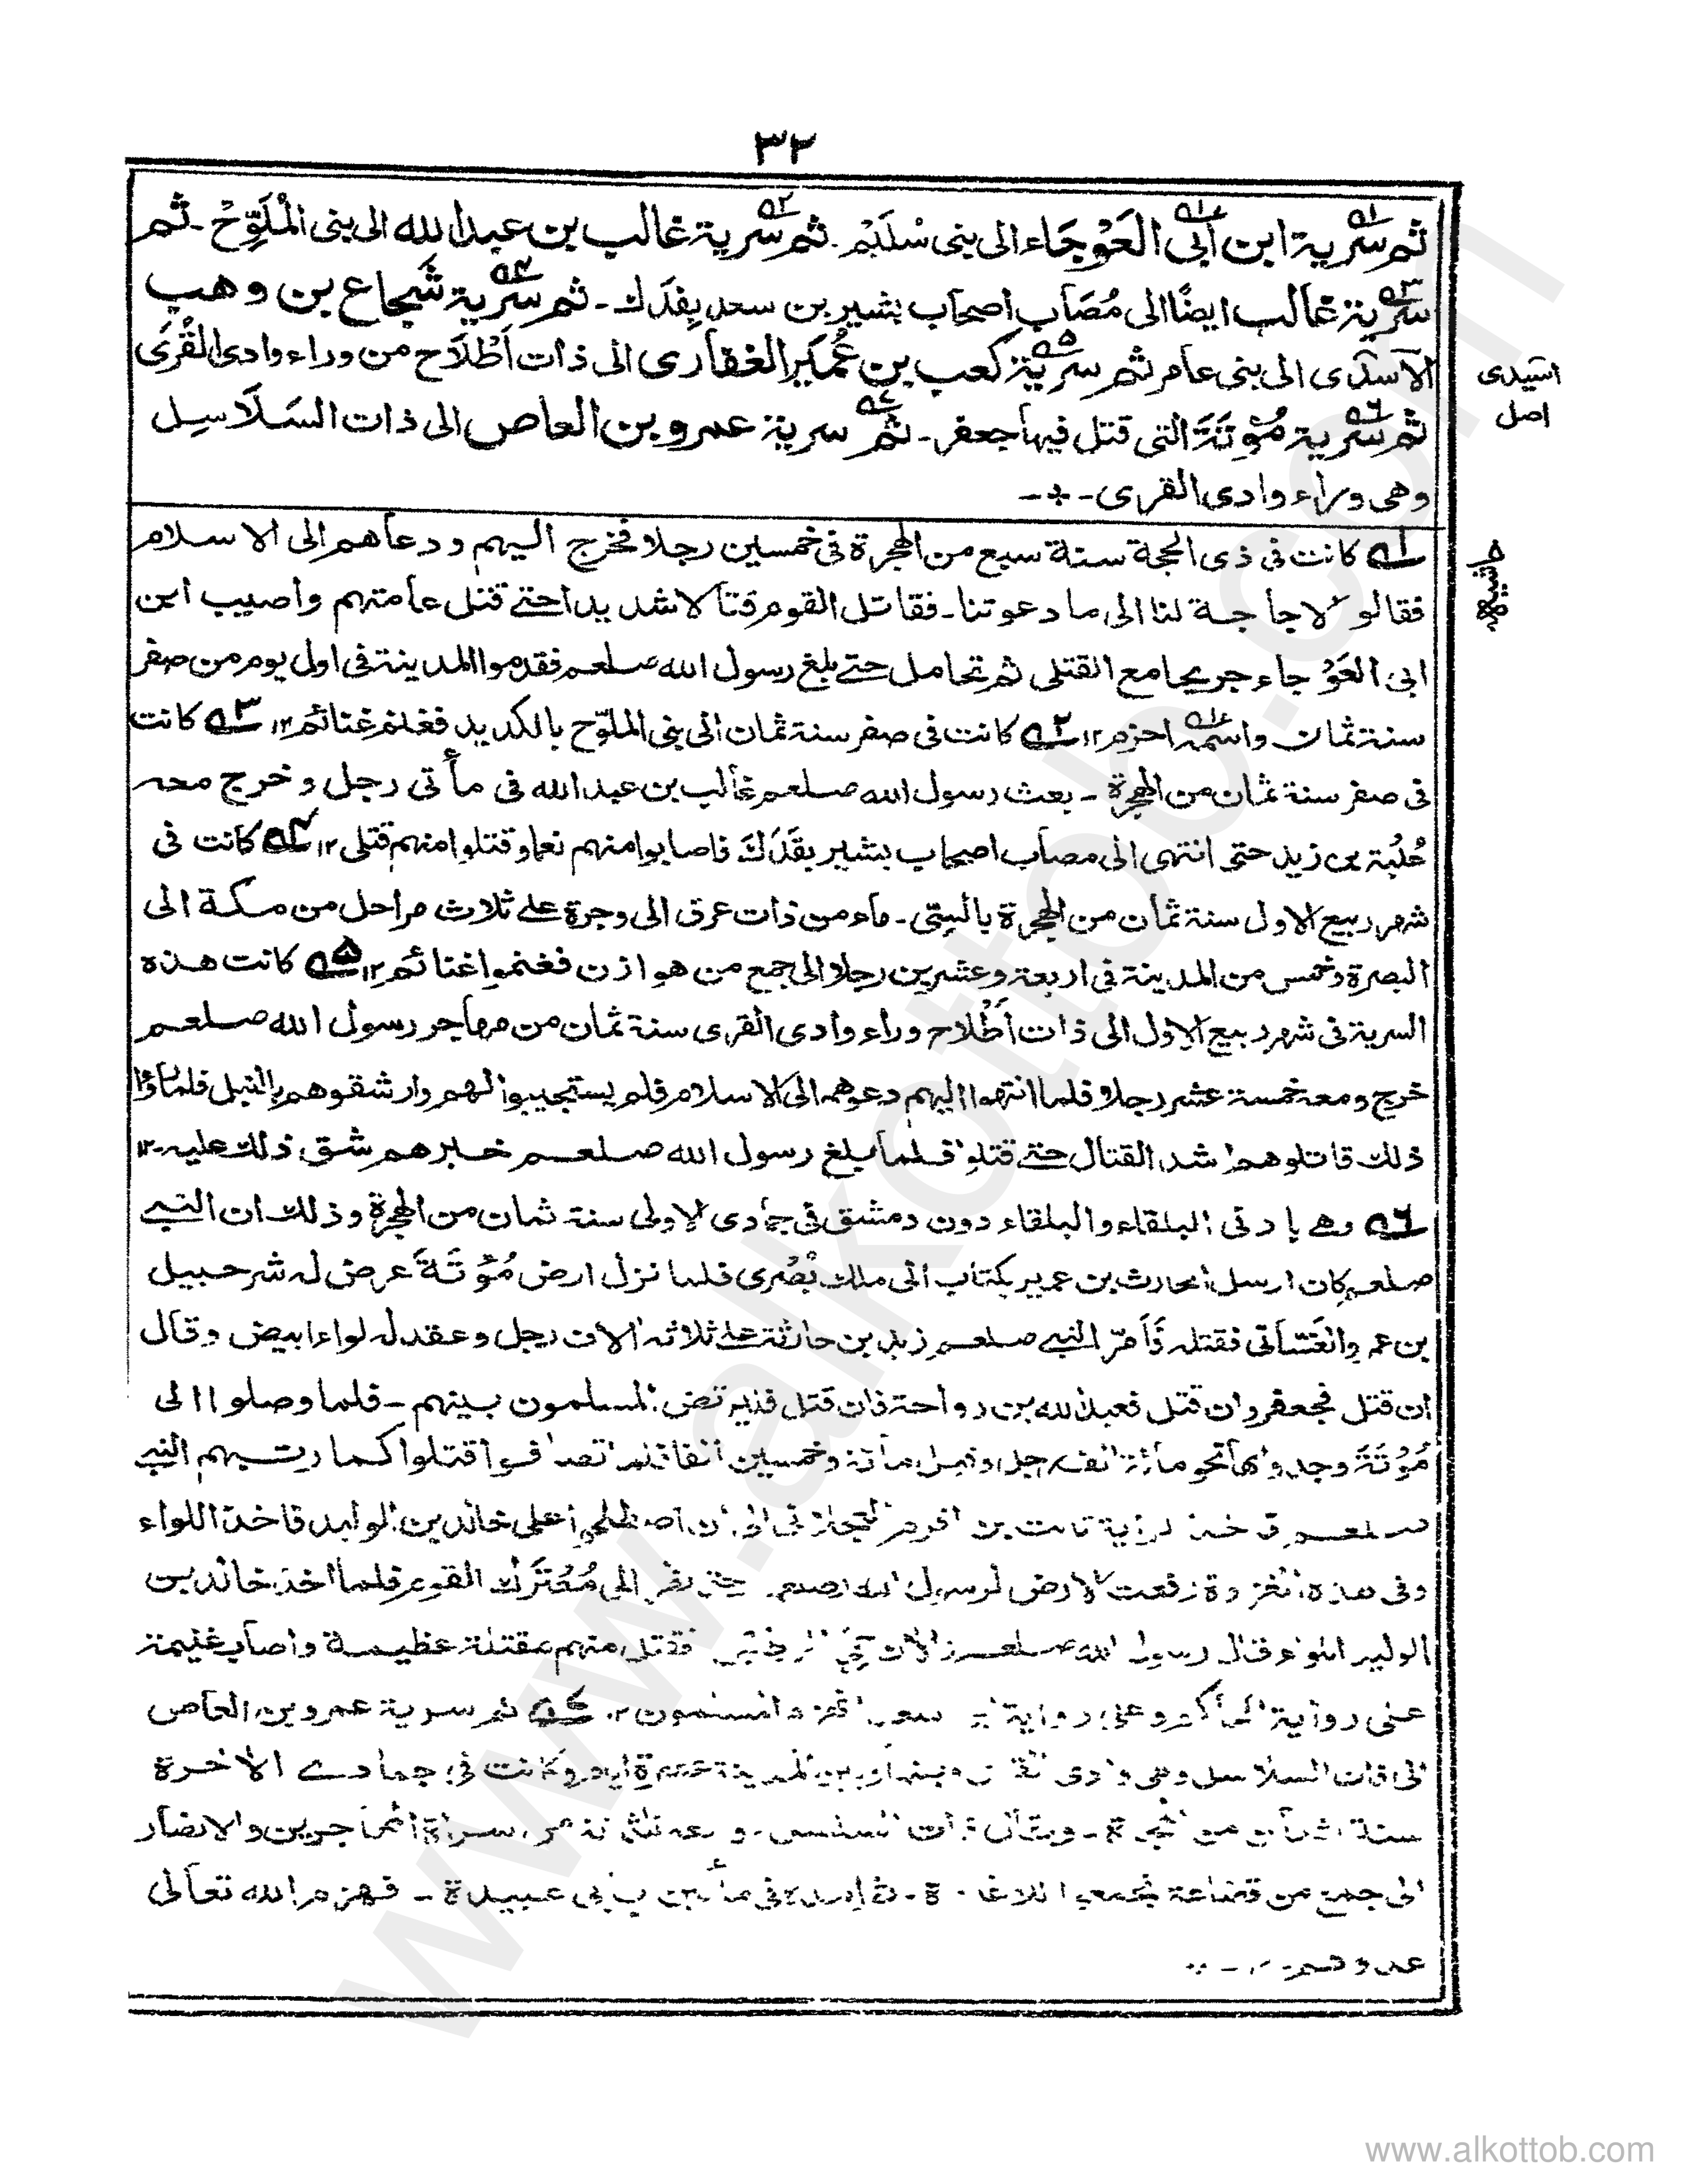 ٣٢
ثم سرية ابن ابى العَوْجَاء الى بنى سُلَيْم ـ ثم سرية غالب بن عبد الله الى بنى المُلَوِّحْ ـ ثم
سرية غالب ايضًا الى مُصَاب اصحاب بشير بن سعد بِفَدَك ـ ثم سرية شُجاع بن وهب
الاَسَدى الى بنى عامر ثم سرية كعب بن عُمَير الغفارى الى ذات اَطْلاَح من وراء وادى القُرَى
ثم سرية مُؤتَةَ التى قتل فيها جعفر ـ ثم سرية عمرو بن العاص الى ذات السَلَاسِل
وهى وراء وادى القرى ـ
اسيدى
اصل
حاشية
١ه كانت فى ذى الحجة سنة سبع من الهجرة فى خمسين رجلا فخرج اليهم ودعاهم الى الاسلام
فقالو لاحاجة لنا الى ما دعوتنا ـ فقاتل القوم قتالا شديدا حتے قتل عامتهم واصيب ابن
ابى العَوْجاء جريحا مع القتلى ثم تحامل حتے بلغ رسول الله صلعم فقدموا المدينة فى اول يوم من صفر
سنة ثمان واسمه اخزم ١٢ ٢ه كانت فى صفر سنة ثمان الى بنى الملوّح بالكديد فغنم غنائم ١٢ ٣ه كانت
فى صفر سنة ثمان من الهجرة ـ بعث رسول الله صلعم غالب بن عبد الله فى مأتى رجل وخرج معه
عُلبة بن زيد حتى انتهى الى مصاب اصحاب بشير بفَدَك فاصابوا منهم نعما وقتلوا منهم قتلى ١٢ ٤ه كانت فى
شهر ربيع الاول سنة ثمان من الهجرة بالسِىّ ـ ماء من ذات عرق الى وجرة علے ثلاث مراحل من مكة الى
البصرة وخمس من المدينة فى اربعة وعشرين رجلا الى جمع من هوازن فغنموا غنائم ١٢ ٥ه كانت هذه
السرية فى شهر ربيع الاول الى ذات اَطْلاح وراء وادى القرى سنة ثمان من مهاجر رسول الله صلعم
خرج ومعه خمسة عشر رجلا فلما انتهوا اليهم دعوهم الى الاسلام فلم يستجيبوا لهم وارشقوهم بالنبل فلما رأوا
ذلك قاتلوهم اشد القتال حتے قتلوا فلما بلغ رسول الله صلعم خبرهم شق ذلك عليه ١٢
٦ه وهے بادنى البلقاء والبلقاء دون دمشق فى جمادى الاولى سنة ثمان من الهجرة وذلك ان النبے
صلعم كان ارسل الحارث بن عمير بكتاب الى ملك بُصْرى فلما نزل ارض مُؤتَةَ عرض له شرحبيل
بن عمرو الغسانى فقتله فَاَمّرَ النبے صلعم زيد بن حارثة علے ثلاثة الاف رجل وعقد له لواء ابيض وقال
ان قتل فجعفر وان قتل فعبد الله بن رواحة فان قتل فليرتض المسلمون بينهم ـ فلما وصلوا الى
مُؤتَةَ وجدوها نحو مائة الف رجل وقيل مأئة وخمسين الفا فلما تصافوا اقتلوا كما رتبهم النبے
صلعم فاخذ الراية ثابت بن اقرم الى ان اصطلحوا على خالد بن الوليد فاخذ اللواء
وفى هذه الغزوة رفعت الارض لرسول الله صلعم حتى نظر الى مُعْتَرَك القوم فلما اخذ خالد بن
الوليد اللواء قال رسول الله صلعم الان حَمِىَ الوطيس فقتل منهم مقتلة عظيمة واصاب غنيمة
على رواية الحاكم وعلى رواية ابن سعد انهزم المسلمون ١٢ ٧ه ثم سرية عمرو بن العاص
الى ذات السلاسل وهى وادى القرى وبينها وبين المدينة عشرة ايام وكانت فى جمادے الاخرة
سنة ثمان من الهجرة ـ ويقال ذات السلسل ـ ومعه ثلثمائة من سراة المهاجرين والانصار
الى جمع من قضاعة تجمعوا للاغارة ـ ثم امده فى مأتين بابى عبيدة ـ فهزم الله تعالى
عدوهم ـ ١٢ ـ
www.alkottob.com